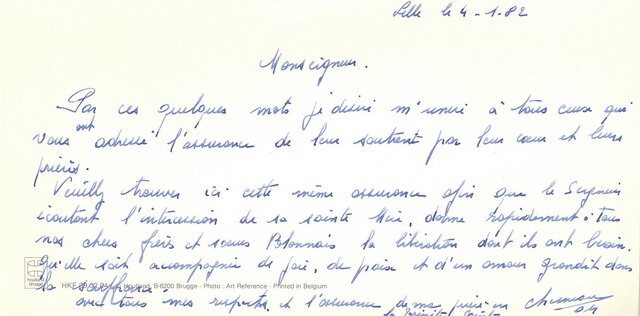 Lille le 4-1-82
Monseigneur.
Par ces quelques mots je désire m'unir à tous ceux qui
vous ont adressé l'assurance de leur soutient par leur cœur et leurs
prières.
Veuilly trouver ici cette même assurance afin que le Seigneur
écoutant l'intercession de sa sainte Mère, donne rapidement à tous
nos chers frères et sœurs Polonnais la libération dont ils ont besoin.
Qu'elle soit accompagnée de joie, de paix et d'un amour grandit dans
la souffrance.
HKE Houtland, B-8200 Brugge - Photo : Art Reference - Printed in Belgium
avec tous mes respects et l'assurance de ma prière en